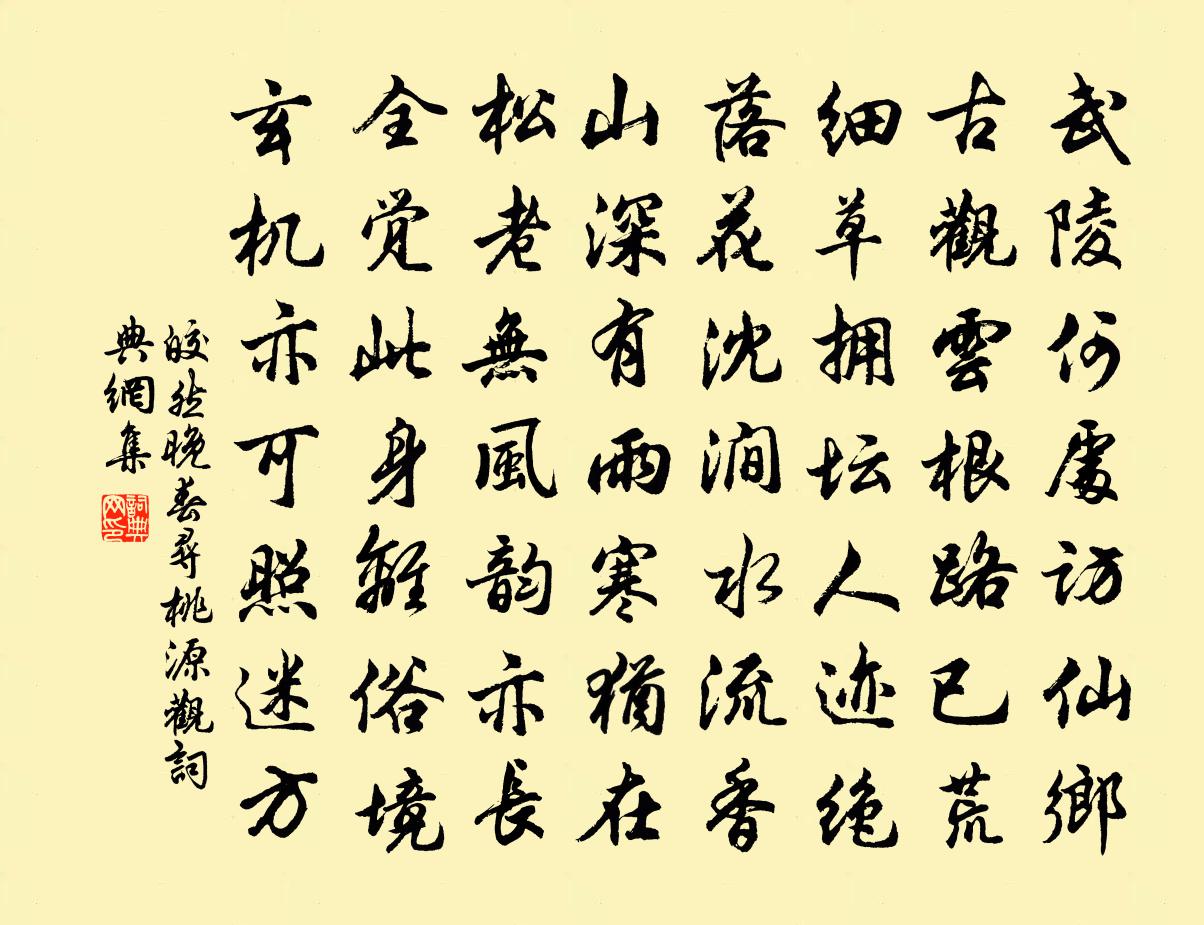 武陵何處访仙鄉
古觀雲根路已荒
细草拥坛人迹绝
落花沈涧水流香
山深有雨寒猶在
松老無風韵亦長
全觉此身離俗境
玄机亦可照迷方
皎然晚春尋桃源觀詞
典網集
詞典網印